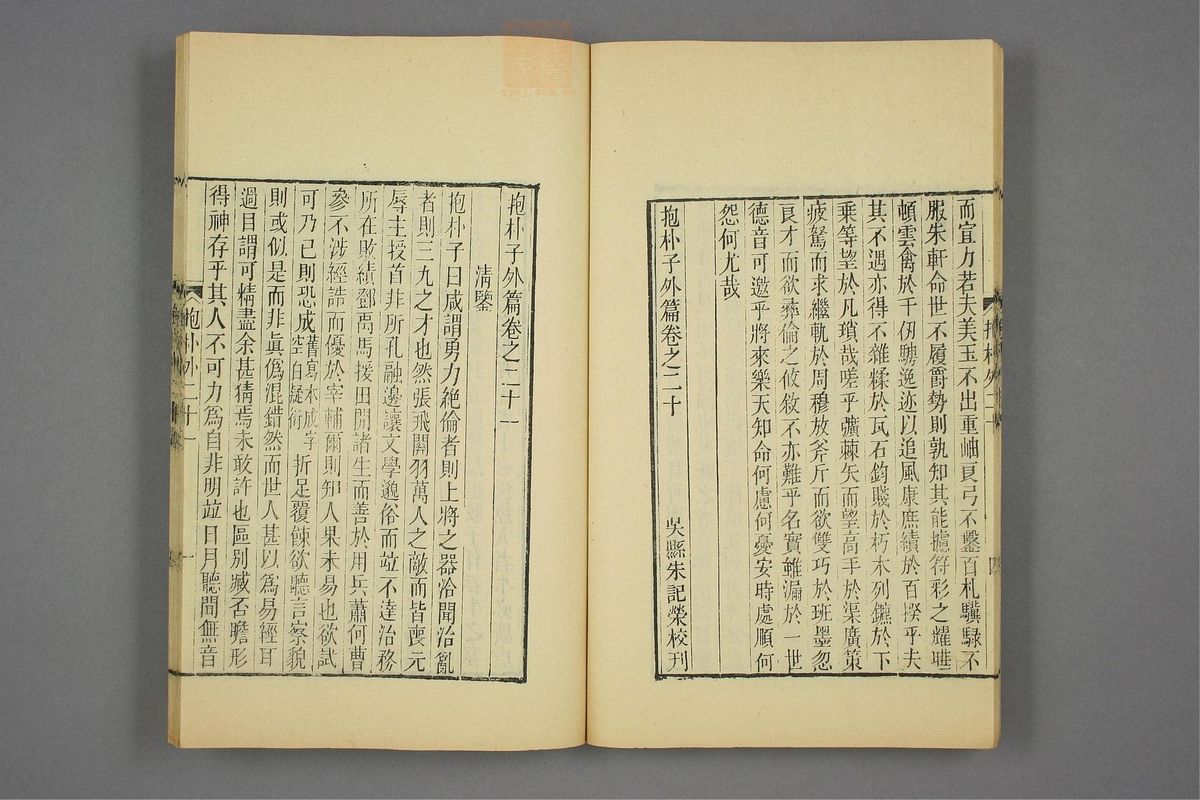 而宣力若夫美玉不出重岫良弓不鑿百札驥騄不
服朱軒命世不履爵勢則孰知其能攄符彩之耀曄
頓雲禽於千仞騁逸迹以追風康庶績於百揆乎夫
其不遇亦得不雜糅於瓦石鈞賤於朽木列鑣於下
乘等望於凡瑣哉嗟乎彍棘矢而望高手於渠廣策
疲駑而求繼軌於周穆放斧斤而欲雙巧於班墨忽
良才而欲彝倫之攸敘不亦難乎名實雖漏於一世
德音可邀乎將來樂天知命何慮何憂安時處順何
怨何尤哉
抱朴子外篇卷之二十 吳縣朱記榮校刊
抱朴外二十
四
抱朴子外篇卷之二十一
清鑒
抱朴子曰咸謂勇力絶倫者則上將之器洽聞治亂
者則三九之才也然張飛關羽萬人之敵而皆喪元
辱主授首非所孔融邊讓文學邈俗而竝不達治務
所在敗績鄧禹馬援田閒諸生而善於用兵蕭何曹
參不涉經誥而優於宰輔爾則知人果未易也欲試
可乃已則恐成舊寫本成字空白疑衍折足覆餗欲聽言察貌
則或似是而非眞僞混錯然而世人甚以爲易經耳
過目謂可精盡余甚猜焉未敢許也區別臧否瞻形
得神存乎其人不可力爲自非明竝日月聽聞無音
抱朴外二十一
一